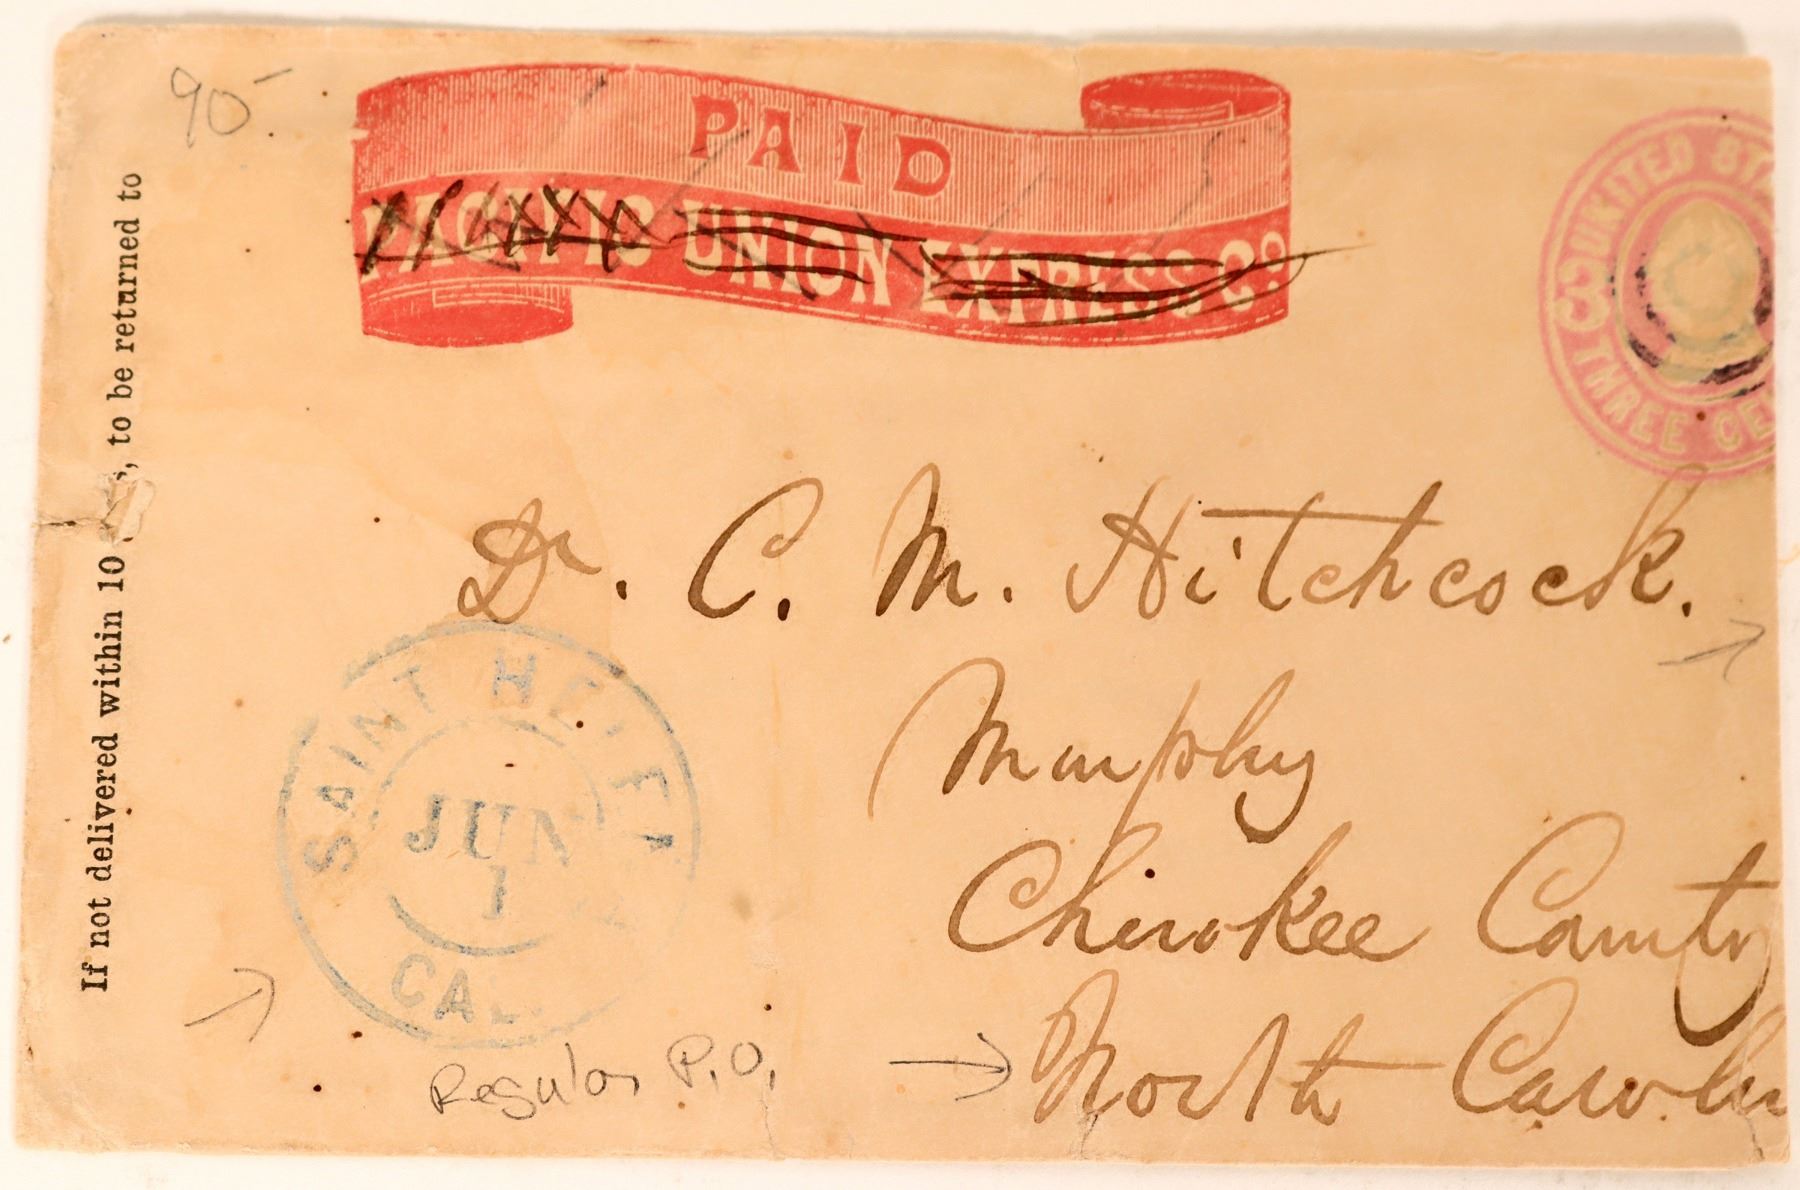 90-
PAID
PACIFIC UNION EXPRESS Co
UNITED STA
3
THREE CE
If not delivered within 10 s, to be returned to
Dr. C. M. Hitchcock.
Murphy
Cherokee County
North Carolin
SAINT HELENA
JUN
1
CAL.
Regular P.O.